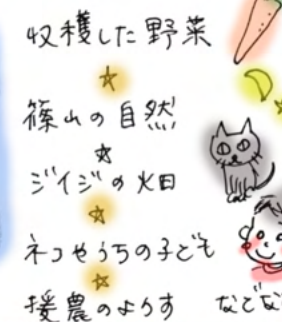 収穫した野菜
篠山の自然
ジイジの畑
ネコやうちの子ども
援農のようす などな